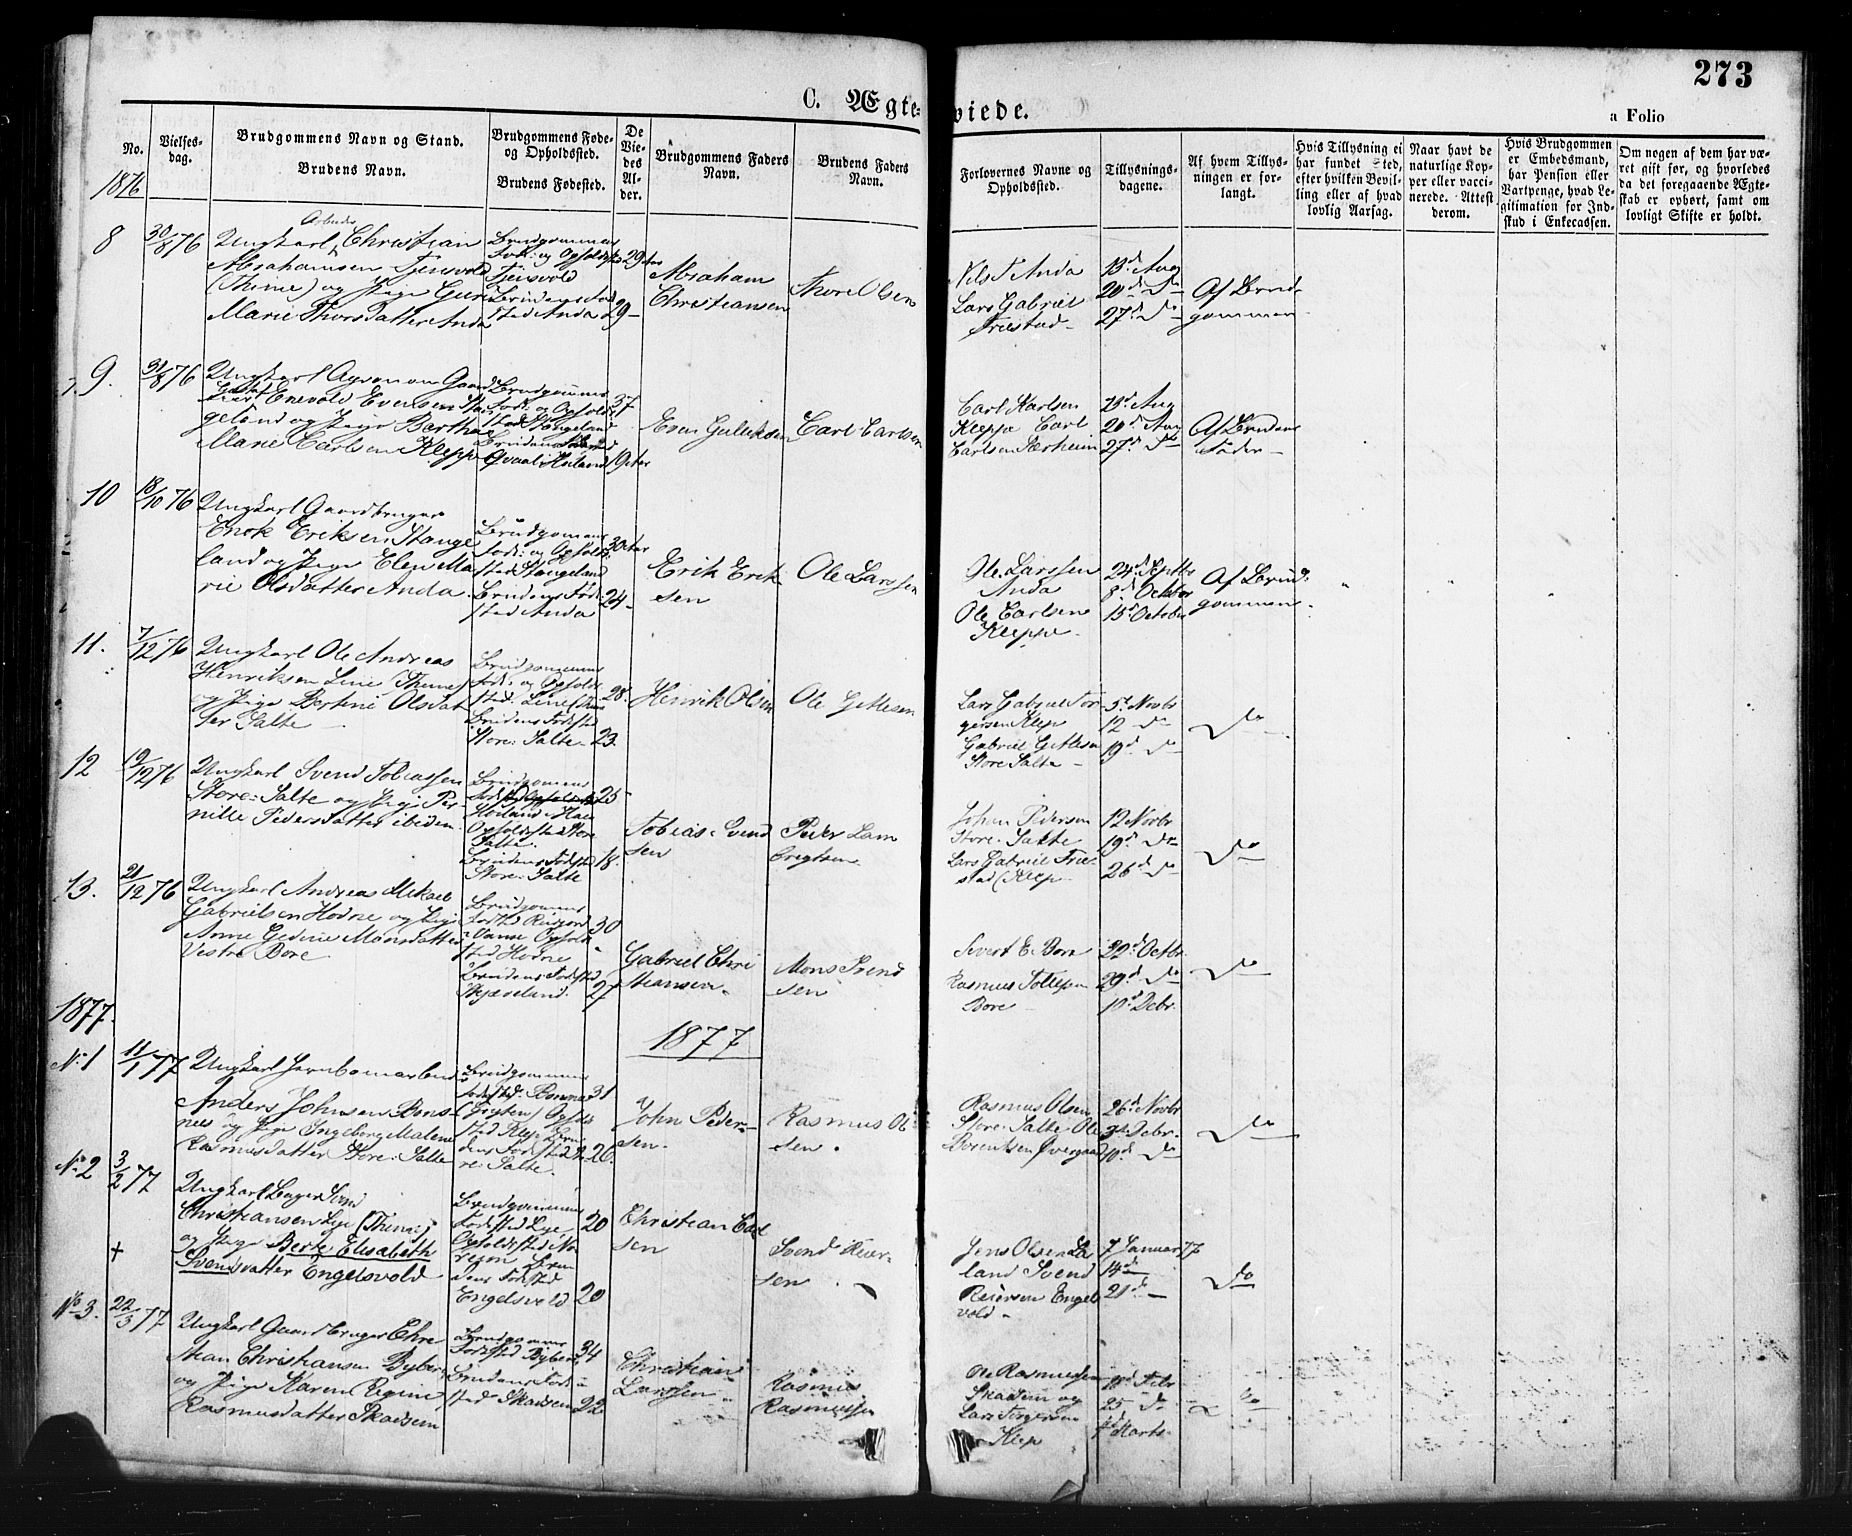 273
C. Ægte-
viede.
a Folio
No.
Vielses-
dag.
Brudgommens Navn og Stand.
Brudens Navn.
Brudgommens Føde-
og Opholdssted.
Brudens Fødested.
De
Vie-
des
Al-
der.
Brudgommens Faders
Navn.
Brudens Faders
Navn.
Forlovernes Navne og
Opholdssted.
Tillysnings-
dagene.
Af hvem Tillys-
ningen er for-
langt.
Hvis Tillysning ei
har fundet Sted,
efter hvilken Bevil-
ling eller af hvad
lovlig Aarsag.
Naar havt de
naturlige Kop-
per eller vacci-
nerede. Attest
derom.
Hvis Brudgommen
er Embedsmand,
har Pension eller
Vartpenge, hvad Le-
gitimation for Ind-
skud i Enkecassen.
Om nogen af dem har væ-
ret gift før, og hvorledes
da det foregaaende Ægte-
skab er ophørt, samt om
lovligt Skifte er holdt.
1876
8
30/8 76
Arbeider
Ungkarl Christian
Abrahamsen Tjensvold
(Thime) og Pige Guri
Marie Thorsdatter Anda
Brudgommens
Fød: og Opholdssted
Tjensvold
Brudens Fød
sted Anda
29 Aar
29
Abraham
Christiansen
Thore Olsen
Nils T Anda
Lars Gabriel
Friestad
13d Aug
20d Do
27d Do
Af Brud-
gommen
9.
31/8 76
Ungkarl
Enevold Evensen Stan
geland og Pige Bertha
Marie Carlsen Kleppe
Brudgommens
Fød: og Opholds
sted Stangeland
Brudens Fødested
Qvaal Høiland
37
19 Aar
Even Gulliksen
Carl Carlsen
Carl Karlsen
Kleppe Carl
Carlsen Særheim
13d Aug
20d Aug
27d Do
Af Brudens
Fader
10
18/10 76
Ungkarl Gaardbruger
Enok Eriksen Stange
land og Pige Elen Ma
rie Olsdatter Anda
Brudgommens
Fød: og Opholds
sted Stangeland
Brudens Fød:
sted Anda
30 Aar
24
Erik Erik
sen
Ole Larssen
Ole Larssen
Anda
Ole Carlsen
Kleppe
24d Septbr
8d October
15d October
Af Brud-
gommen
11.
7/12 76
Ungkarl Ole Andreas
Henriksen Line (Thime)
og Pige Bertine Olsdat
ter Salte
Brudgommens
Fød: og Opholds
sted Line (Thime
Brudens Fødested
Store: Salte
28.
23.
Henrik Olsen
Ole Gitlesen
Lars Gabriel Tor
gersen Klep
Gabriel Gitlesen
Store Salte
5d Novbr
12 Do
19d Do
Do
12
19/12 76
Ungkarl Svend Tobiassen
Store: Salte og Pige Per-
nille Pedersdatter ibidem
Brudgommens
Høiland
Opholdssted Store
Salte.
Brudens Fødested
Store: Salte
25
18.
Tobias Svend
sen
Peder Lam
bregtsen
Johan Pedersen
Store: Salte
Lars Gabriel Frie-
stad (Klep
12 Novbr
19d Do
26d Do
Do
13.
21/12 76
Ungkarl Andreas Mikael
Gabrielsen Hodne og Pige
Anne Gedine Monsdatter
Vestre Bore.
Brudgommens
Vanse Ophold
sted Hodne
Brudens Fødested
Skjæveland.
30
27
Gabriel Chri
stiansen
Mons Svend
sen
Sivert E. Bore
Rasmus Tollefsen
Bore
22d Octbr.
29d Do
10d Debr.
Do
1877.
1877
No 1
11/1 77
Ungkarl Jernbanearbeid
Anders Johnsen Bons-
nes og Pige Ingeborg Malene
Rasmusdatter Store: Salte
Brudgommens
Fødested: Bonsnæs
sted Klep Bru
dens Fødested Sto
re: Salte.
31
26.
John Peder-
sen.
Rasmus Ol
sen.
Rasmus Olsen
Store: Salte Ole
Berentsen Øvergaard
26d Novbr
3d Debr.
10d Do
Do
No 2
3/2 77
+
Ungkarl Bager Svend
Christiansen Lye (Thime)
og Pige Berte Elisabeth
Svendsdatter Engelsvold
Brudgommens
Fødested Lye
Opholdssted No
reim Bru
dens Fødested
Engelsvold
20
20
Christian Carl
sen
Svend Reier-
sen
Jens Olsen La
land Svend
Reiersen Engel
vold
7 Januar 77
14d
21d
Do
No 3.
22/3 77
Ungkarl Gaardbruger Chri
stian Christiansen Byberg
og Pige Karen Regine
Rasmusdatter Skadsem
Brudgommens
Fødested Byberg
Brudens Fød:
sted Skadsem
34
22
Christian
Larssen
Rasmus
Rasmussen
Ole Rasmussen
Skadsem og
Lars Torgersen
Klep
18d Febr
25 do
4d Marts
Do